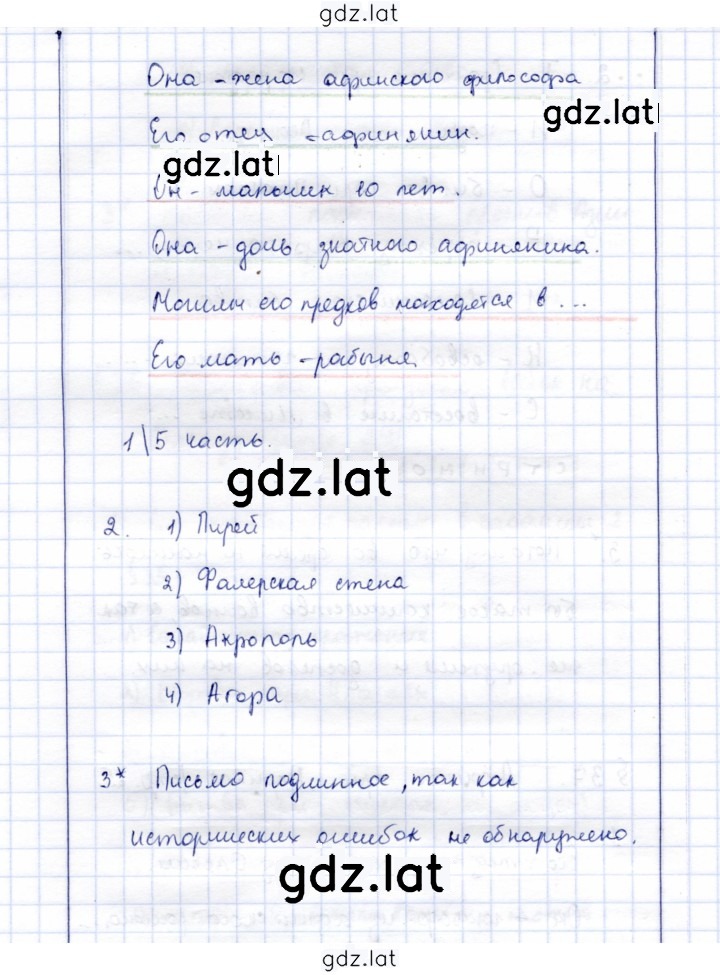 gdz.lat
Она - жена афинского философа
gdz.lat
Его отец - афинянин.
gdz.lat
Он - мальчик 10 лет.
Она - дочь знатного афинянина.
Могилы его предков находятся в ...
Его мать - рабыня
1\5 часть.
gdz.lat
2. 1) Пирей
2) Фалерская стена
3) Акрополь
4) Агора
3* Письмо подлинное, так как
исторических ошибок не обнаружено.
gdz.lat
gdz.lat